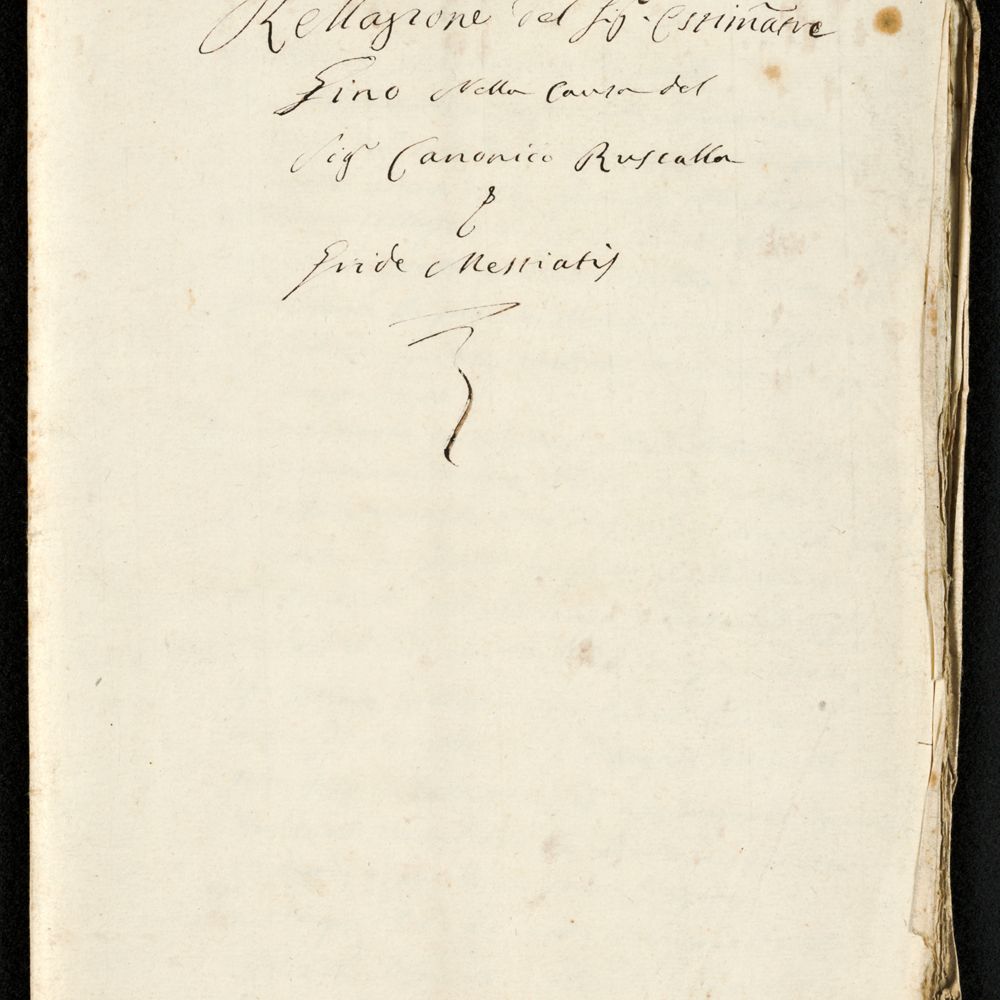 Rellazione del Sig.r Estimatre
Gino Nella Causa del
Sig.r Canonico Ruscalla
e
Eride Messiatis